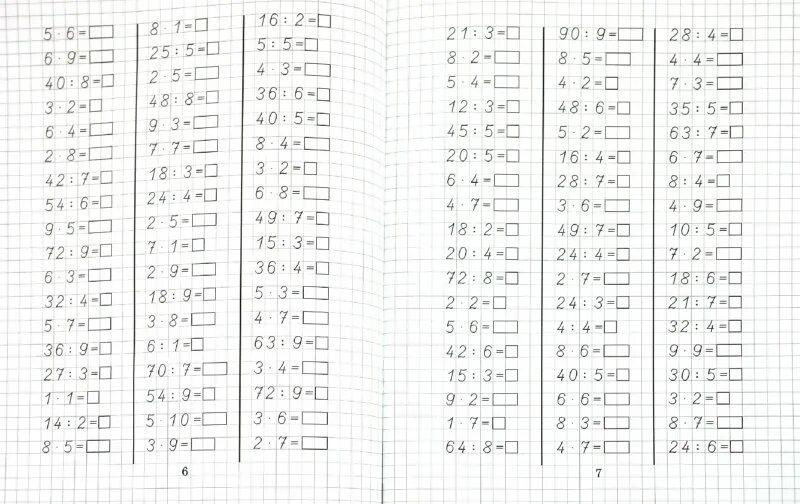 5 · 6 =
6 · 9 =
40 : 8 =
3 · 2 =
6 · 4 =
2 · 8 =
42 : 7 =
54 : 6 =
9 · 5 =
72 : 9 =
6 · 3 =
32 : 4 =
5 · 7 =
36 : 9 =
27 : 3 =
1 · 1 =
14 : 2 =
8 · 5 =
8 · 1 =
25 : 5 =
2 · 5 =
48 : 8 =
9 · 3 =
7 · 7 =
18 : 3 =
24 : 4 =
2 · 5 =
7 · 1 =
2 · 9 =
18 : 9 =
3 · 8 =
6 : 1 =
70 : 7 =
54 : 9 =
5 · 10 =
3 · 9 =
16 : 2 =
5 : 5 =
4 · 3 =
36 : 6 =
40 : 5 =
8 · 4 =
3 · 2 =
6 · 8 =
49 : 7 =
15 : 3 =
36 : 4 =
5 · 3 =
4 · 7 =
63 : 9 =
3 · 4 =
72 : 9 =
3 · 6 =
2 · 7 =
6
21 : 3 =
8 · 2 =
5 · 4 =
12 : 3 =
45 : 5 =
20 : 5 =
6 · 4 =
4 · 7 =
18 : 2 =
20 : 4 =
72 : 8 =
2 · 2 =
5 · 6 =
42 : 6 =
15 : 3 =
9 · 2 =
1 · 7 =
64 : 8 =
90 : 9 =
8 · 5 =
4 · 2 =
48 : 6 =
5 · 2 =
16 : 4 =
28 : 7 =
3 · 6 =
49 : 7 =
24 : 4 =
2 · 7 =
24 : 3 =
4 : 4 =
8 · 6 =
40 : 5 =
6 · 6 =
8 · 3 =
4 · 7 =
28 : 4 =
4 · 4 =
7 · 3 =
35 : 5 =
63 : 7 =
6 · 7 =
8 : 4 =
4 · 9 =
10 : 5 =
7 · 2 =
18 : 6 =
21 : 7 =
32 : 4 =
9 · 9 =
30 : 5 =
3 · 2 =
8 · 7 =
24 : 6 =
7